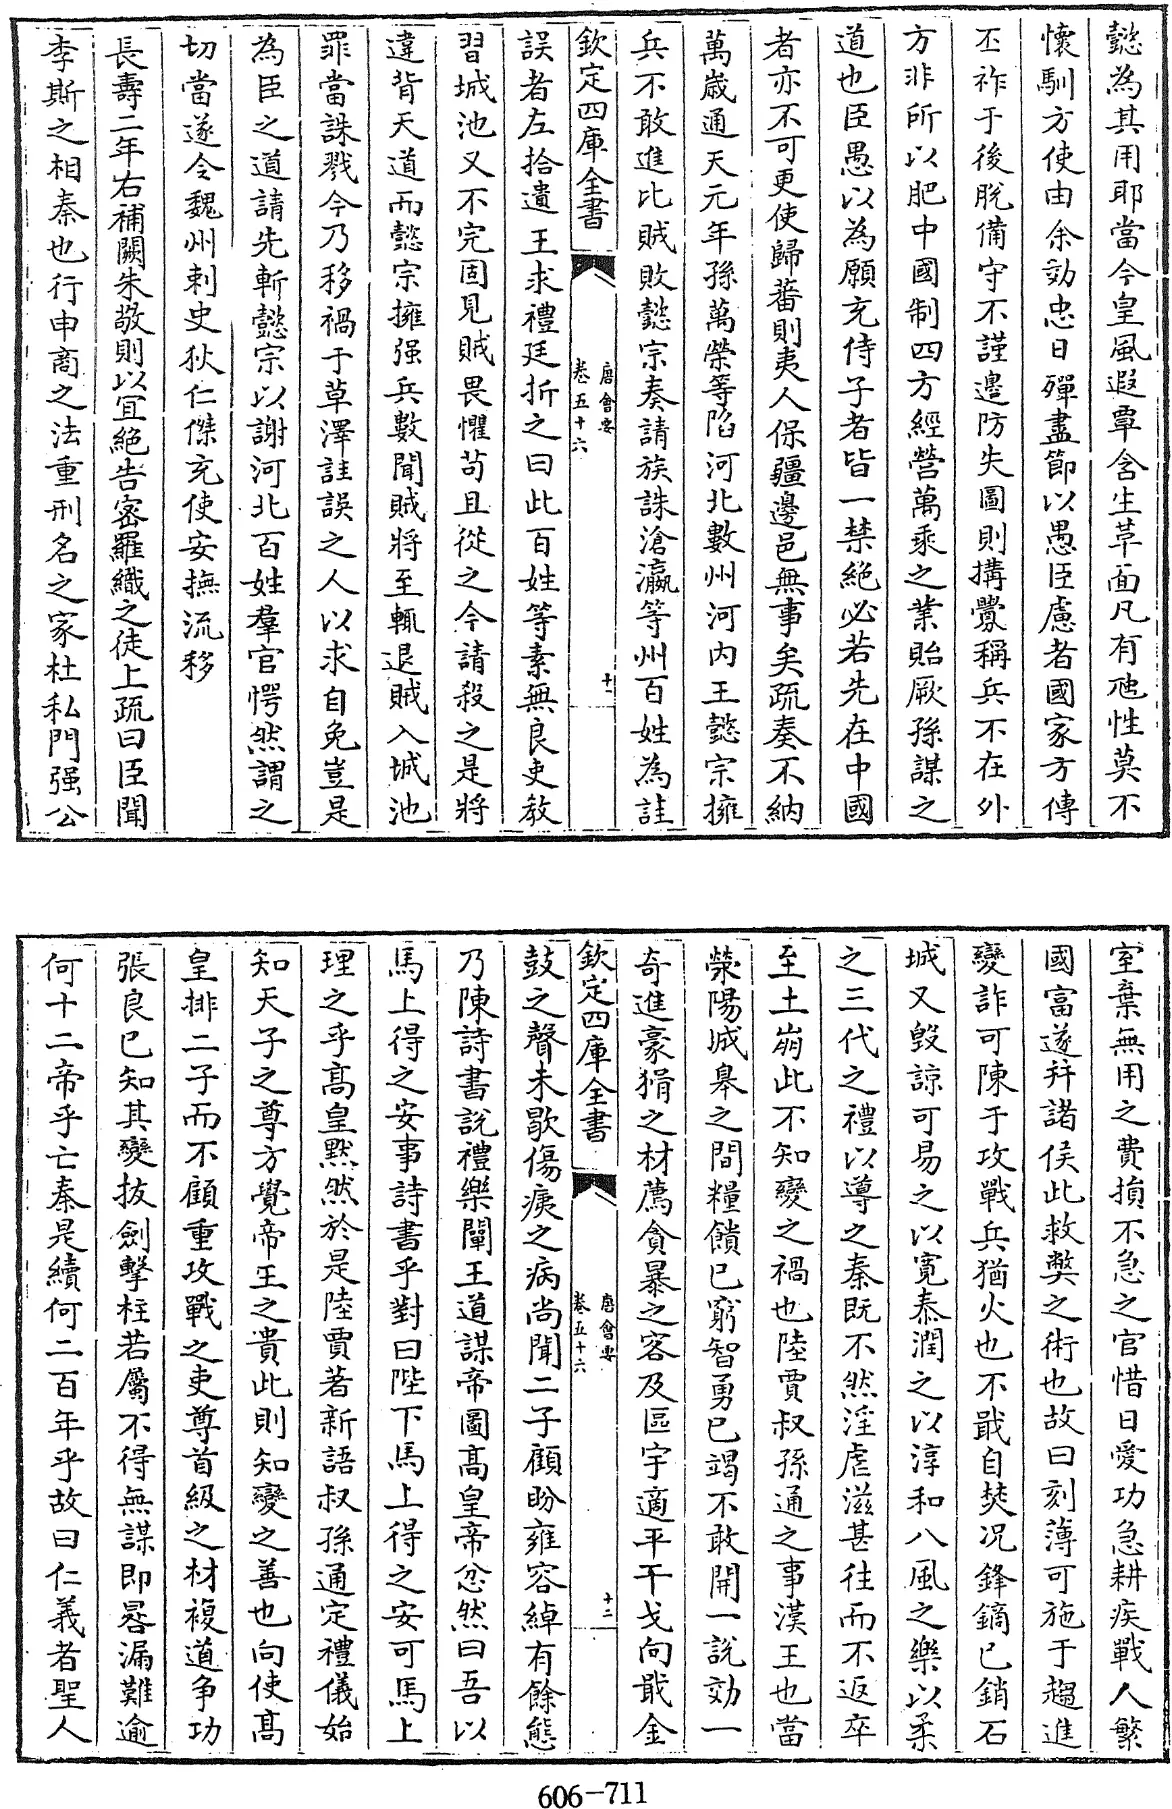 懿為其用耶當今皇風遐覃含生革面凡有虺性莫不
懷馴方使由余効忠日殫盡節以愚臣慮者國家方傳
丕祚于後脫備守不謹邊防失圖則搆釁稱兵不在外
方非所以肥中國制四方經營萬乘之業貽厥孫謀之
道也臣愚以為願充侍子者皆一禁絕必若先在中國
者亦不可更使歸蕃則夷人保疆邊邑無事矣疏奏不納
萬歲通天元年孫萬榮等陷河北數州河內王懿宗擁
兵不敢進比賊敗懿宗奏請族誅滄瀛等州百姓為詿
欽定四庫全書
唐會要
卷五十六
十一
誤者左拾遺王求禮廷折之曰此百姓等素無良吏教
習城池又不完固見賊畏懼苟且從之今請殺之是將
違背天道而懿宗擁强兵數聞賊將至輒退賊入城池
罪當誅戮今乃移禍于草澤詿誤之人以求自免豈是
為臣之道請先斬懿宗以謝河北百姓羣官愕然謂之
切當遂令魏州刺史狄仁傑充使安撫流移
長壽二年右補闕朱敬則以宜絕告密羅織之徒上疏曰臣聞
李斯之相秦也行申商之法重刑名之家杜私門强公
室棄無用之費損不急之官惜日愛功急耕疾戰人繁
國富遂幷諸侯此救弊之術也故曰刻薄可施于趨進
變詐可陳于攻戰兵猶火也不戢自焚况鋒鏑已銷石
城又毀諒可易之以寬泰潤之以淳和八風之樂以柔
之三代之禮以導之秦既不然淫虐滋甚往而不返卒
至土崩此不知變之禍也陸賈叔孫通之事漢王也當
滎陽城皋之間糧饋已窮智勇已竭不敢開一說効一
奇進豪猾之材薦貪暴之客及區宇適平干戈向戢金
欽定四庫全書
唐會要
卷五十六
十二
鼓之聲未歇傷痍之病尚聞二子顧盼雍容綽有餘態
乃陳詩書說禮樂闡王道謀帝圖高皇帝忿然曰吾以
馬上得之安事詩書乎對曰陛下馬上得之安可馬上
理之乎高皇黙然於是陸賈著新語叔孫通定禮儀始
知天子之尊方覺帝王之貴此則知變之善也向使高
皇排二子而不顧重攻戰之吏尊首級之材複道争功
張良已知其變拔劍擊柱若屬不得無謀即晷漏難逾
何十二帝乎亡秦是續何二百年乎故曰仁義者聖人
606-711